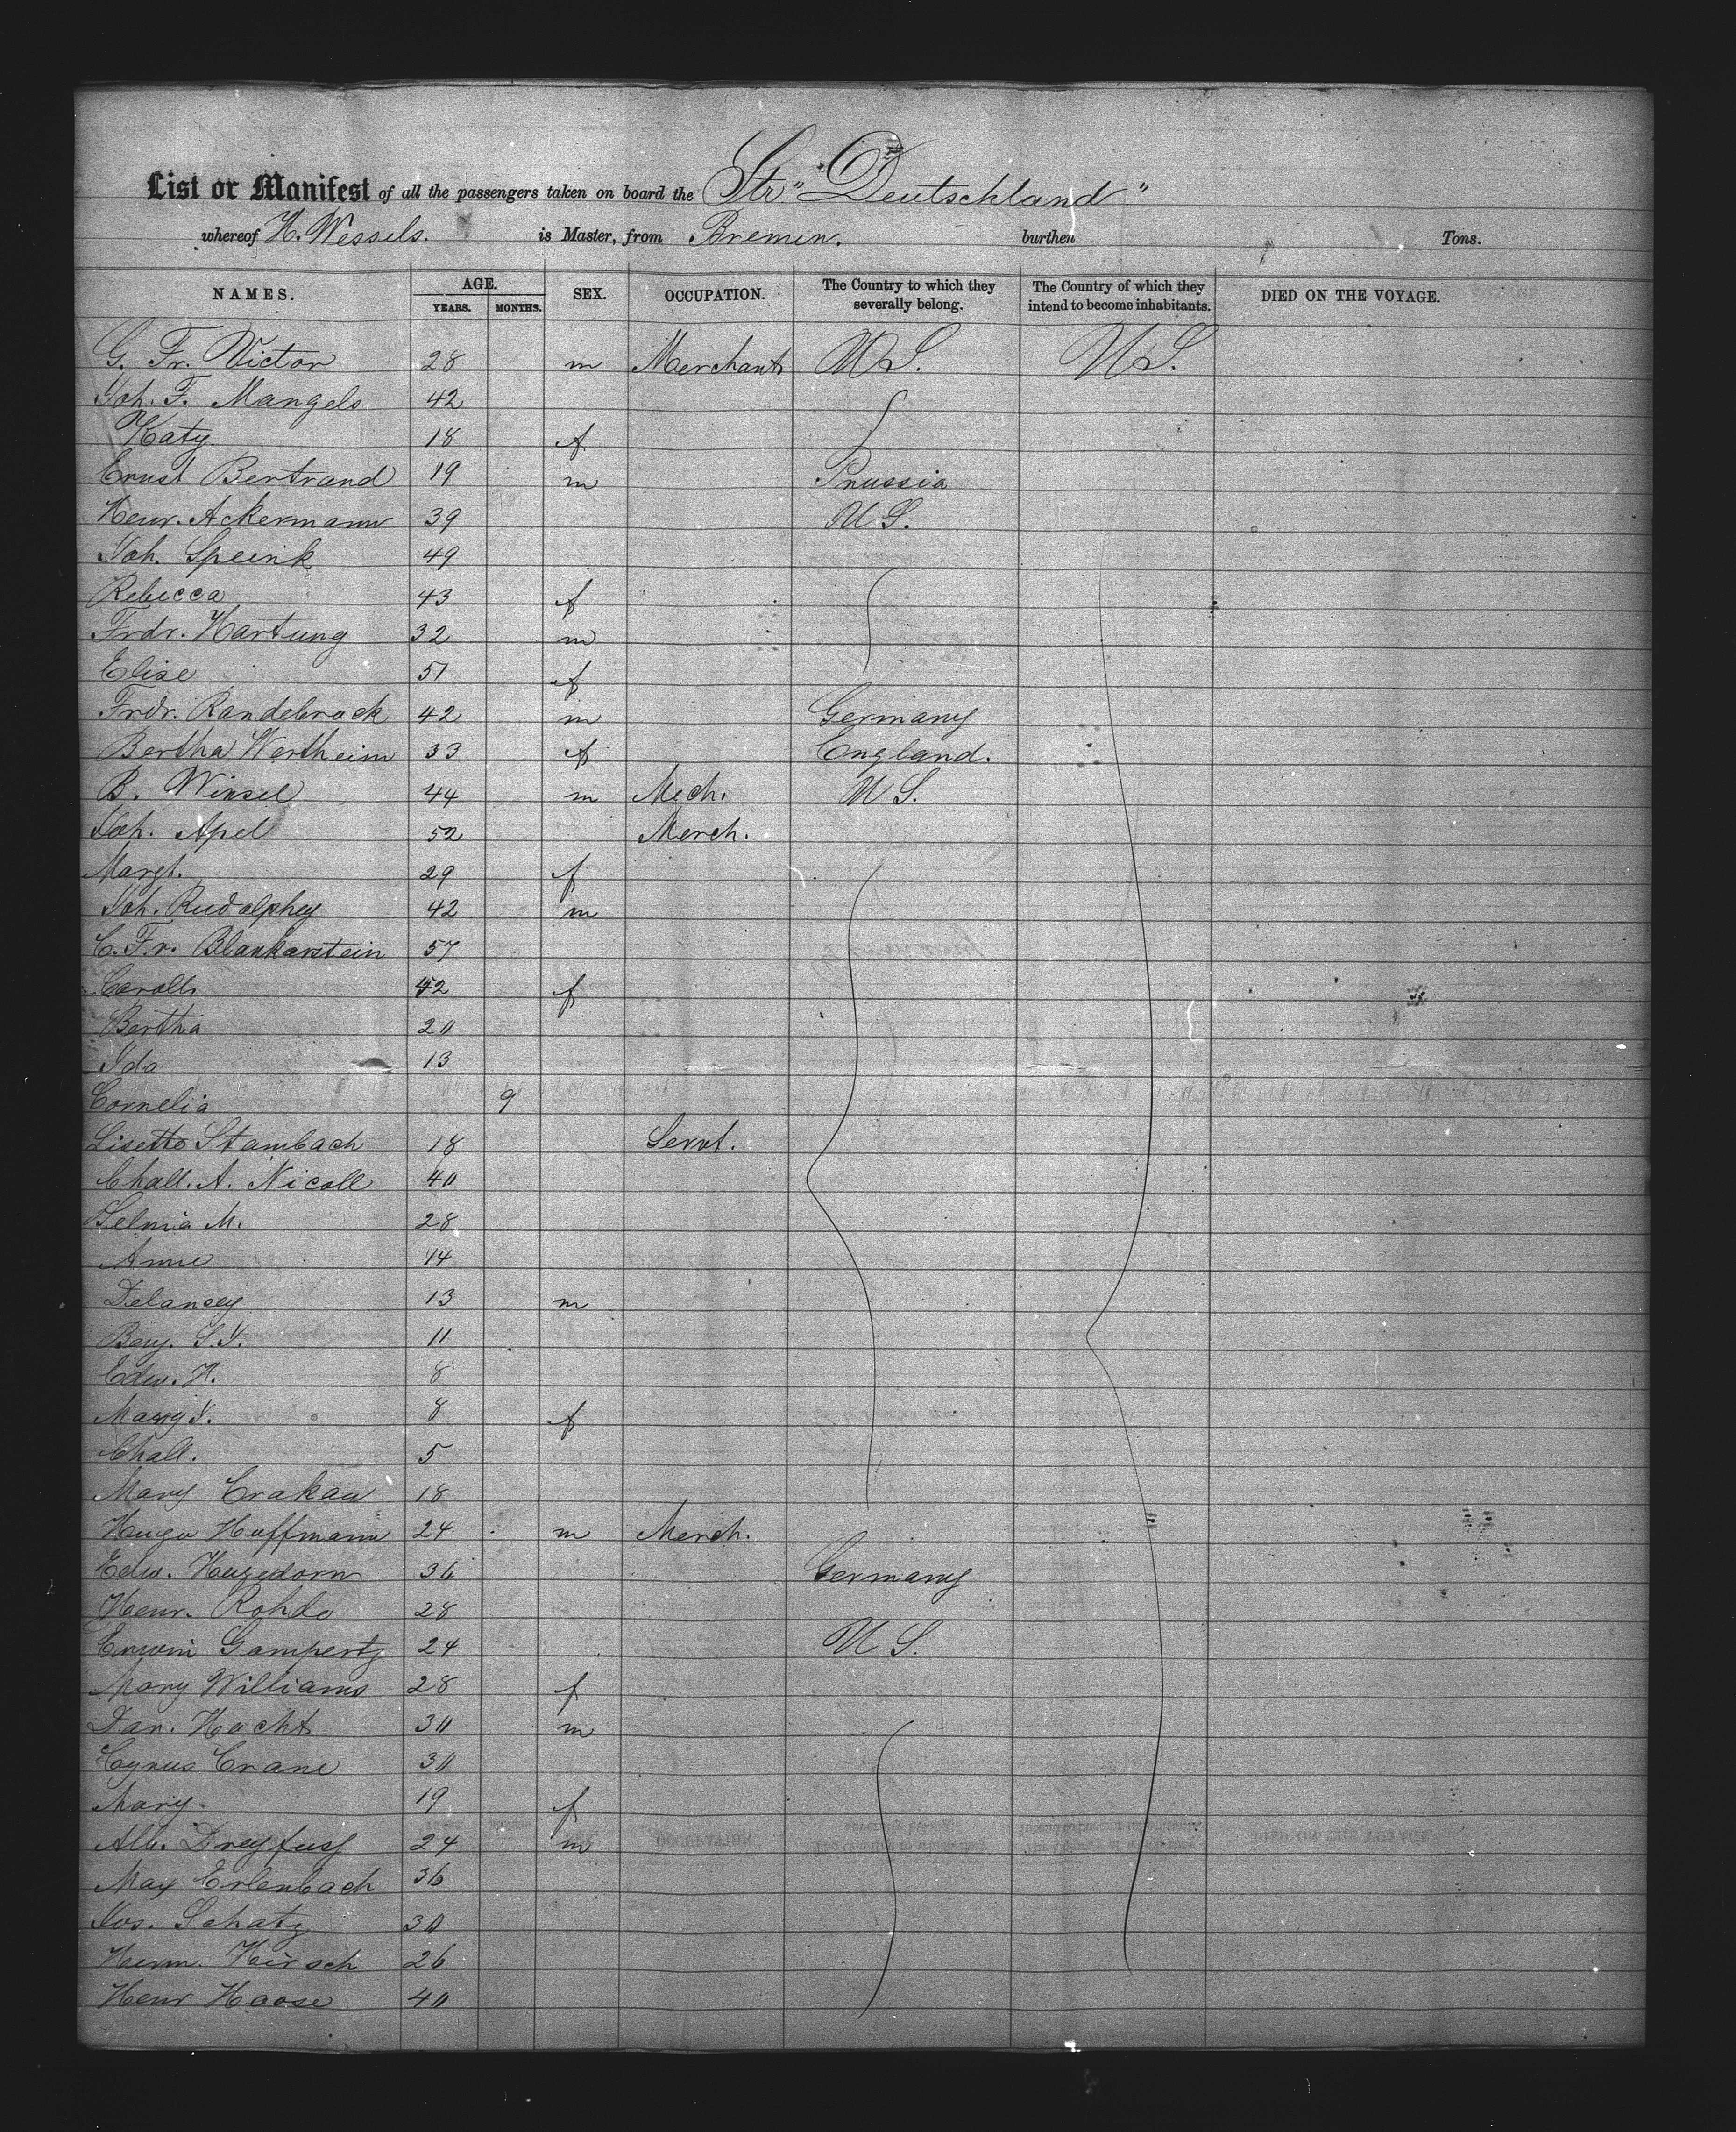 List or Manifest of all the passengers taken on board the Str "Deutschland"
whereof H. Wessels. is Master, from Bremen. burthen Tons.
NAMES. AGE. YEARS. MONTHS. SEX. OCCUPATION. The Country to which they severally belong. The Country of which they intend to become inhabitants. DIED ON THE VOYAGE.
G. Fr. Victor 28 m Merchant U.S. U.S.
Joh. F. Mangels 42
Katy 18 f
Ernst Bertrand 19 m Prussia
Henr. Ackermann 39 U S.
Joh. Speink 49
Rebecca 43 f
Frdr. Hartung 32 m
Elise 51 f
Frdr. Randebrock 42 m Germany
Bertha Wertheim 33 f England.
B. Winsel 44 m Mech. U S.
Joh. Apel 52 Merch.
Margt. 29 f
Joh. Rudolphey 42 m
C. Fr. Blankarstein 57
Caroll 42 f
Bertha 20
Ida 13
Cornelia 9
Lisette Stambach 18 Servt.
Chall. A. Nicoll 40
Selma M. 28
Anne 14
Delancey 13 m
Benj. S.I. 11
Edw. H. 8
Mary I. 8 f
Chall. 5
Mary Crakau 18
Hugo Hoffmann 24 m Merch.
Edw. Hagedorn 36 Germany
Henr. Rohde 28
Erwin Gompertz 24 U S.
Mary Williams 28 f
Dan. Hecht 30 m
Cyrus Crane 30
Mary 19 f
Alb. Dreyfuss 24 m
Max Erlenbach 36
Jos. Schatz 30
Herm. Hirsch 26
Henr Haase 40